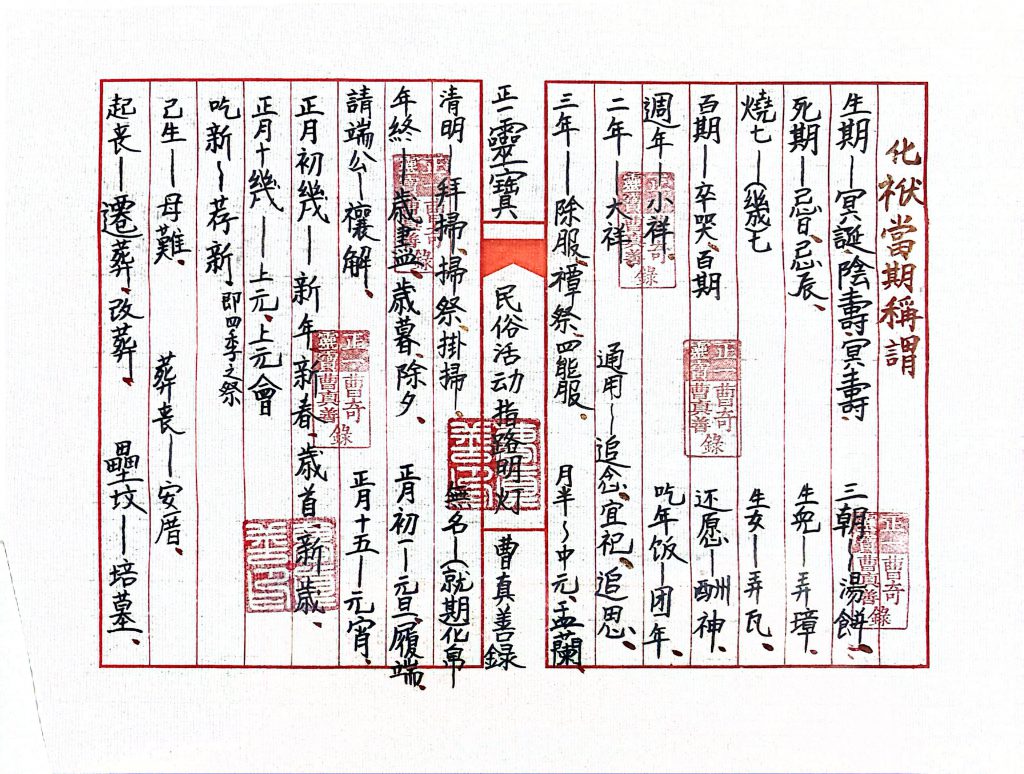 化袱當期稱謂
生期—冥誕、陰壽、冥壽、 三朝—湯餅、
死期—忌日、忌辰、 生兒—弄璋、
燒七—(幾)七 生女—弄瓦、
百期—卒哭、百期 还愿—酬神、
週年—小祥、 吃年饭—团年、
二年—大祥、 通用—追念、宜祀、追思、
三年—除服、禫祭、 月半~中元、盂蘭、
正一靈寶 民俗活动指路明灯 曹真善錄
清明—拜掃、掃祭、掛掃、 無名—(就期化帛
年終—歲盡、歲暮、除夕、 正月初一—元旦、履端、
請端公—禳解、 正月十五—元宵、
正月初幾—新年、新春、歲首、新歲、
正月十幾—上元、上元會
吃新~荐新、即四季之祭
己生—母難、 葬丧—安厝、
起丧—遷葬、改葬、 壘坟—培墓、
正一靈寶曹真善曹奇錄
正一靈寶曹真善曹奇錄
正一靈寶曹真善曹奇錄
正一靈寶曹真善曹奇錄
正一靈寶曹真善曹奇錄